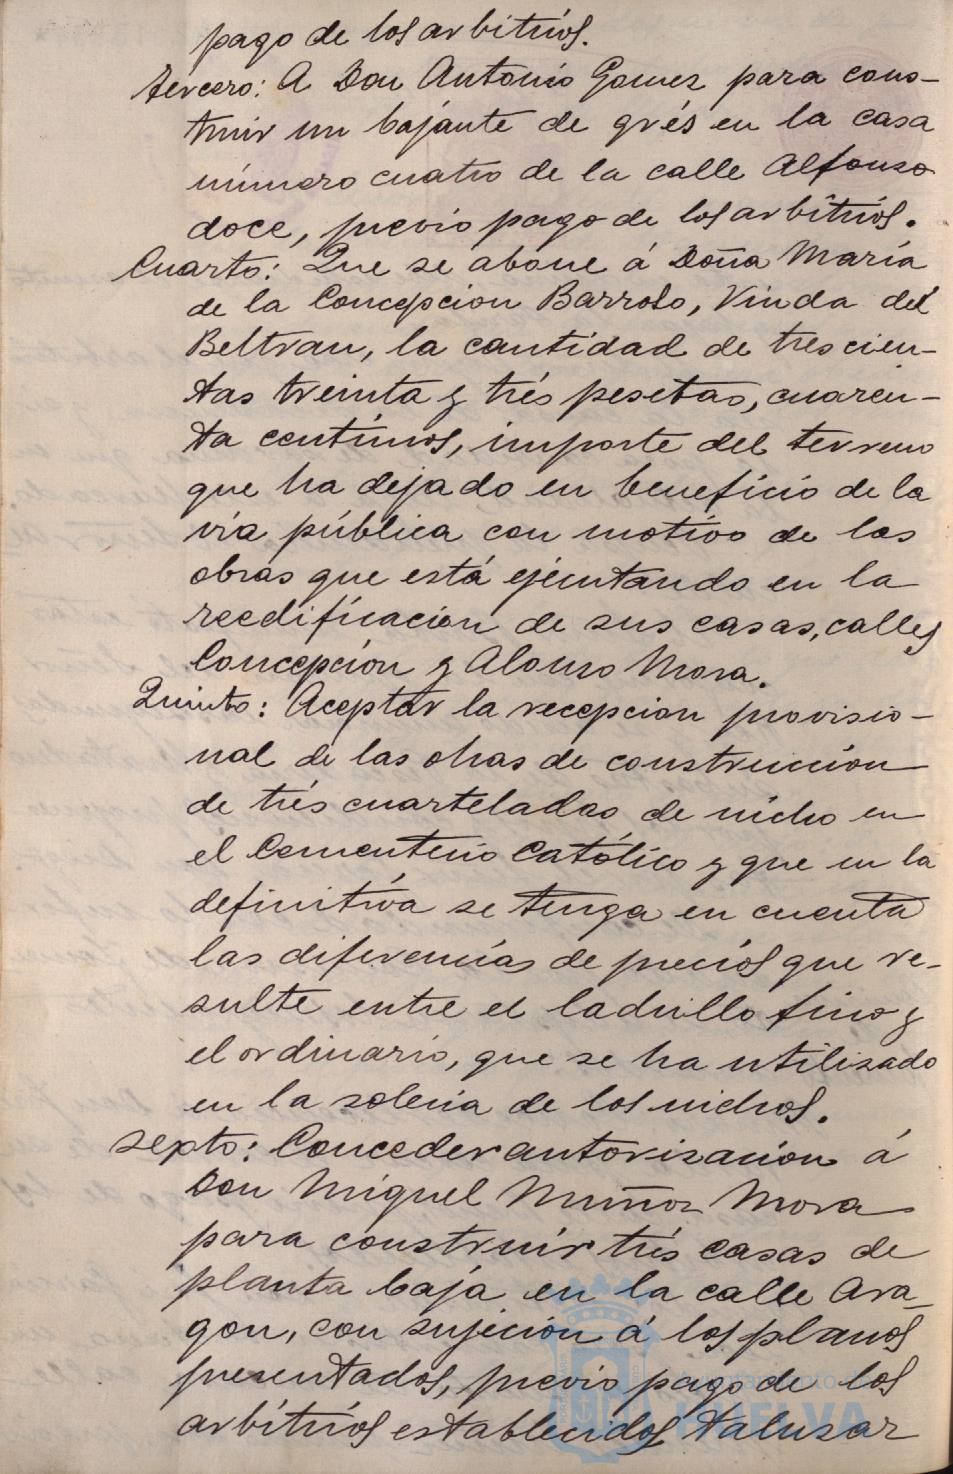 pago de los arbitrios.
Tercero: A Don Antonio Gomez para cons-
truir un bajante de grés en la casa
número cuatro de la calle Alfonso
doce, previo pago de los arbitrios.
Cuarto: Que se abone á Doña María
de la Concepcion Barroso, Viuda de
Beltran, la cantidad de trescien-
tas treinta y trés pesetas, cuaren-
ta centimos, importe del terreno
que ha dejado en beneficio de la
via pública con motivo de las
obras que está ejecutando en la
reedificacion de sus casas, calles
Concepción y Alonso Mora.
Quinto: Aceptar la recepcion provisio-
nal de las obras de construccion
de trés cuarteladas de nicho en
el Cementerio Católico y que en la
definitiva se tenga en cuenta
las diferencias de precios que re-
sulte entre el ladrillo fino y
el ordinario, que se ha utilizado
en la soleria de los nichos.
Septo: Conceder autorizacion á
Don Miguel Muñoz Mora
para construir trés casas de
planta baja en la calle Ara-
gon, con sujecion á los planos
presentados, previo pago de los
arbitrios establecidos
Ayuntamiento de
HUELVA